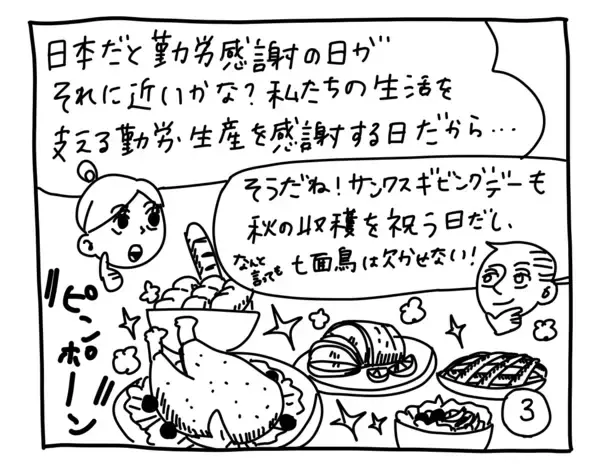 日本だと勤労感謝の日が
それに近いかな?私たちの生活を
支える勤労・生産を感謝する日だから…
そうだね!サンクスギビングデーも
秋の収穫を祝う日だし、
なんと言っても七面鳥は欠かせない!
ピンポーン
3